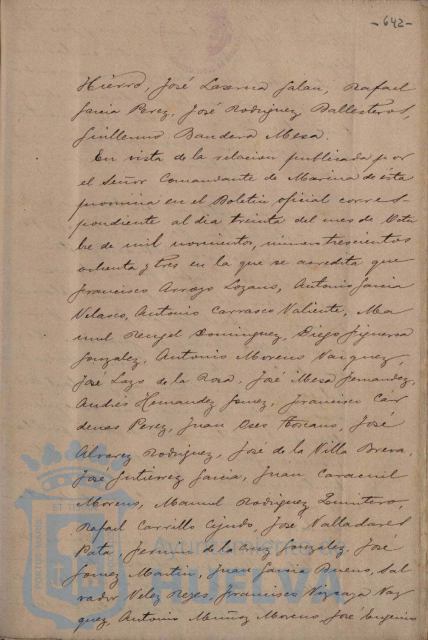 -642-
Hierro, José Laserna Galan, Rafael
Garcia Perez, José Rodriguez Ballesteros,
Guillermo Bandera Mesa.
En vista de la relacion publicada por
el Señor Comandante de Marina de esta
provincia en el Boletin oficial corres-
pondiente al dia treinta del mes de Octu
bre de mil novecientos, número trescientos
ochenta y tres en la que se acredita que
Francisco Arroyo Lozano, Antonio Garcia
Velasco, Antonio Carrasco Valiente, Ma
nuel Rengel Dominguez, Diego Figueroa
Gonzalez, Antonio Moreno Vazquez,
José Lazo de la Rosa, José Mesa Fernandez,
Andrés Hernandez Gomez, Francisco Car
denas Perez, Juan Toscano, José
Alvarez Rodriguez, José de la Villa Brera,
José Gutierrez Garcia, Juan Caracuel
Moreno, Manuel Rodriguez Quintero,
Rafael Carrillo José Valladares
Pata, de la Cruz Gonzalez, José
Gomez Martin, Juan Garcia Bueno, Sal
vador Velez Reyes, Francisco Vizcaya Vaz
quez, Antonio Muñoz Moreno, José Eugenio
HUELVA